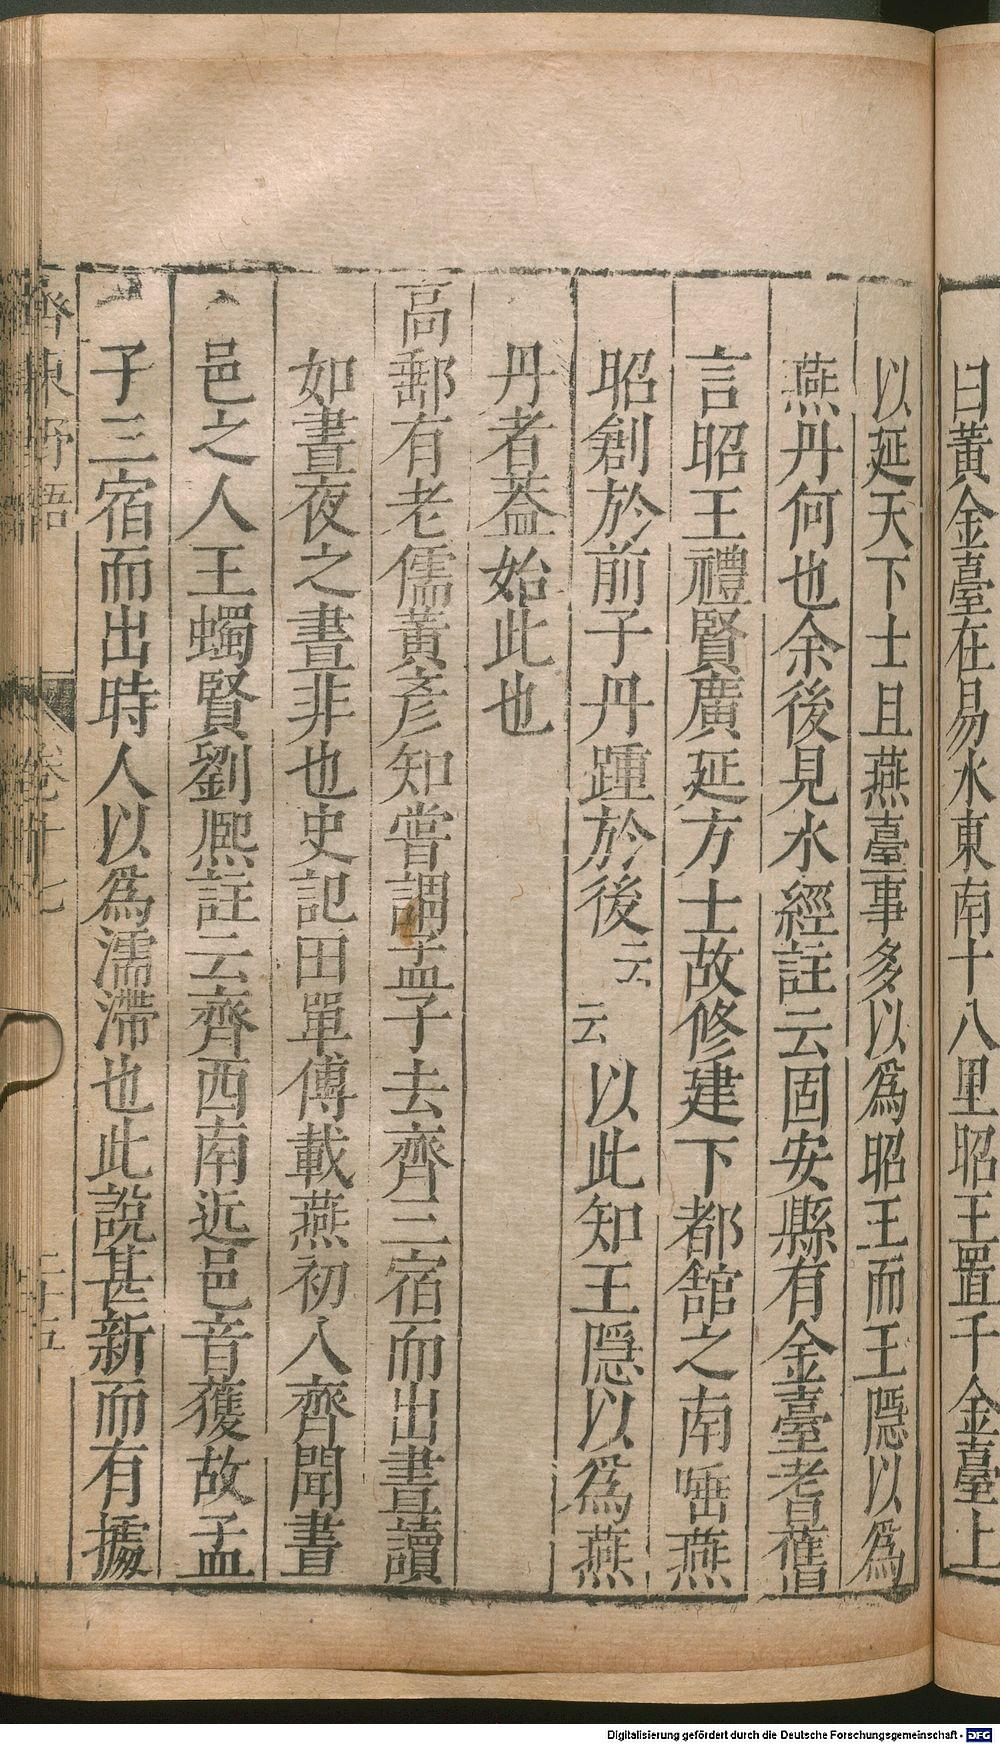 曰黃金臺在易水東南十八里昭王置千金臺上
以延天下士且燕臺事多以爲昭王而王隱以爲
燕丹何也余後見水經註云固安縣有金臺耆舊
言昭王禮賢廣延方士故修建下都舘之南唾燕
昭創於前子丹踵於後云云以此知王隱以爲燕
丹者葢始此也
高郵有老儒黃彥知嘗謂孟子去齊三宿而出晝讀
如晝夜之晝非也史記田單傳載燕初入齊聞晝
邑之人王蠋賢劉熈註云齊西南近邑音獲故孟
子三宿而出時人以爲濡滯也此說甚新而有據
齊東野語 卷十七 二十五
Digitalisierung gefördert durch die Deutsche Forschungsgemeinschaft - DFG